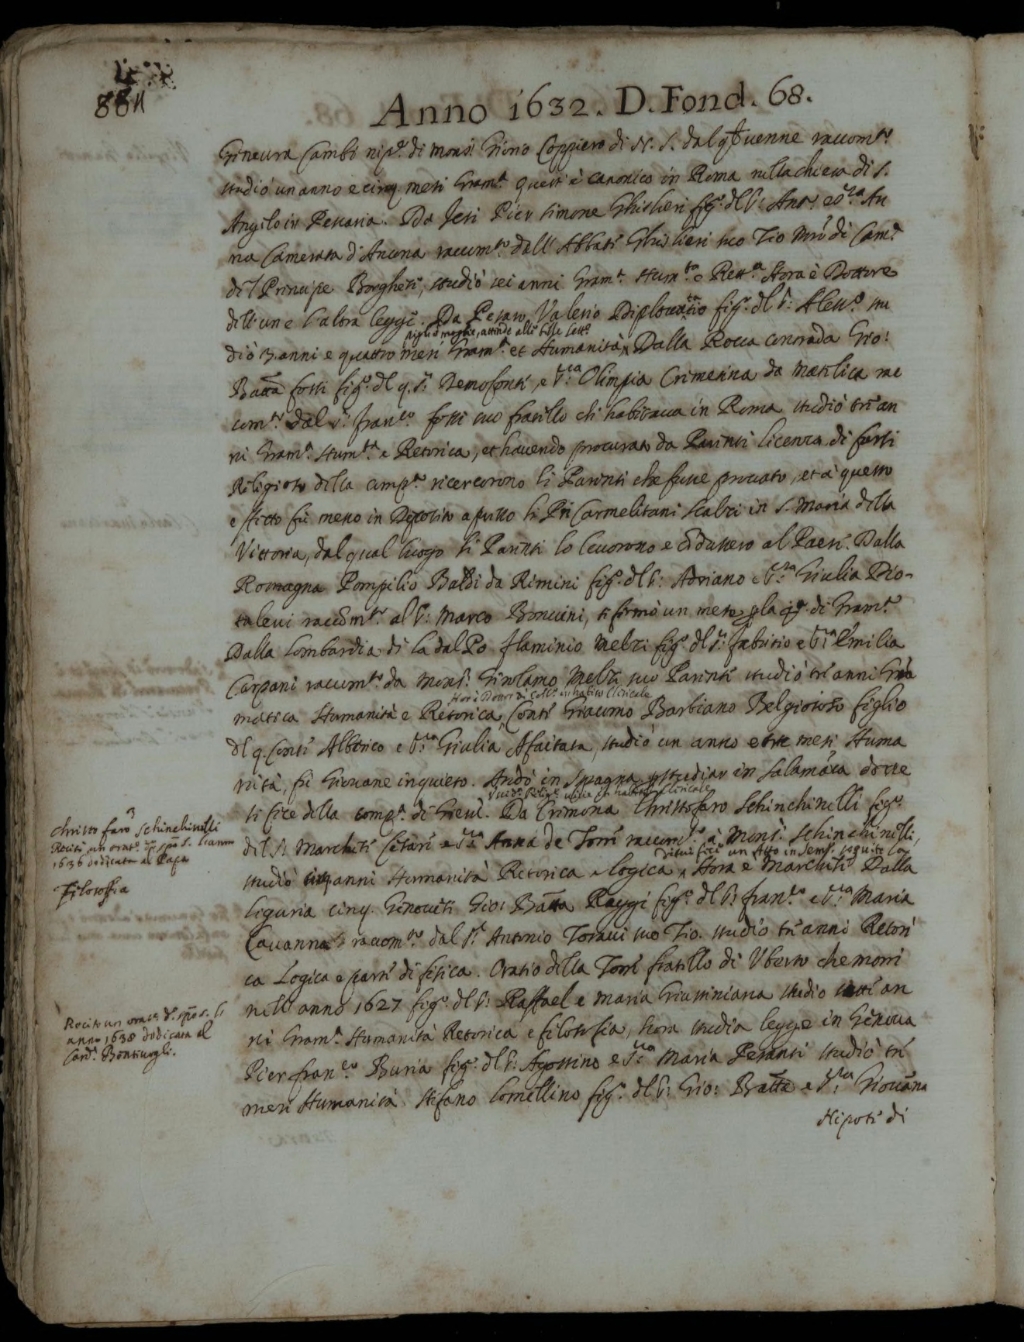 884
Anno 1632. D. Fond. 68.
Gineura Cambi nip.e di mons.r Coppiero di N. S. dal q.le venne raccom.to
studiò un anno e cinq mesi Gram.ca questi è canonico in Roma nella chiesa di S.
Angelo in Pescaria. Da Jesi Pier Simone Ghislieri fig.o del S.r Ant.o e S.ra An
na Camerata d'Ancona raccom.to dall' Abbate Ghislieri suo Tio Mro di Cam.ra
del Principe Borghese, studiò sei anni Gram.ca Hum.tà e Rett.ca Hora è Dottore
dell'un e l'altra legge. Da Pesaro Valerio Diplovatatio fig.o del S.r Aless.o stu
pigliò moglie, attende alle belle lett.e
diò 3 anni e quattro mesi Gram.ca et Humanità, Dalla Rocca Gio:
Batta fosti fig.o del q. S.r Demofonte, e S.ra Olimpia da Matelica rac
com.to dal S.r fran.co fosti suo fratello ch habitaua in Roma studiò tre an
ni Gram.ca Hum.tà e Retorica, et hauendo procurato da Parenti licenza di farsi
Religioso della comp.a ricercorono li Parenti che fusse prouato, et à questo
effetto fu messo in Deposito apresso li Pri Carmelitani scalzi in S. Maria della
Vittoria, dal qual luogo li Parenti lo leuorono e al Paese. Dalla
Romagna Pompilio Baldi da Rimini fig.o del S.r Adriano e S.ra Giulia Dio-
taleui raccom.to al S.r Marco Boncini, si fermò un mese di Gram.ca
Dalla Lombardia di la dal Po flaminio Melzi fig.o del S.r fabritio e S.ra Emilia
Carpani raccom.to da Mons.r Girolamo Melzi suo Parente studiò tre anni Gra
Hora in habito Clericale
matica Humanità e Retorica, Conte Giacomo Barbiano Belgioioso figlio
del q. Conte Alberico e S.ra Giulia Afaitata, studiò un anno e tre mesi Huma
nità, fu Giouane inquieto. Andò in Spagna p studiar in Salamāca doue
in habito clericale
si fece della comp.a di Giesù. Da Cremona Christofaro Schinchinelli fig.o
del S.r Marchese Cesare e S.ra Anna de Torri raccom.to à Mons.r Schinchinelli,
studiò anni Humanità Retorica e logica, Hora è Marchese Dalla
Liguria cinq. Genouesi Gio: Batta Raggi fig.o del S.r fran.co e S.ra Maria
Cauanna raccom.to dal S.r Antonio suo Tio. studiò tre anni Retori
ca Logica e parte di fisica. Oratio della Torre fratello di Uberto che morì
nell' anno 1627 fig.o del S.r Raffael e Maria Giustiniana studio an
ni Gram.ca Humanità Retorica e filosofia, hora studia legge in Genoua
Pier fran.co Buria fig.o del S.r Agostino e S.ra Maria Pesanti studiò tre
mesi Humanità Stefano Lomellino fig.o del S.r Gio: Batta e S.ra Giouāna
Nipote di
Christofaro Schinchinelli
Recitò un orat.e
1636 dedicata al Papa
Filosofia
Recitò un orat.e
anno 1638 dedicata al
Card.l Bentiuogli.